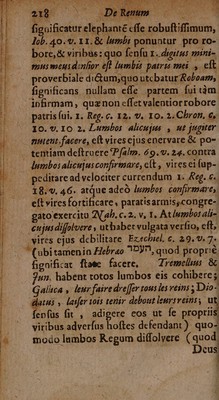 218 De Renum
significatur elephantẽ esse robustissimum,
Iob. 40. v. 11. & lumbi ponuntur pro ro-
bore, & viribus: quo sensu 1. digitus mini-
mus meus densior est lumbis patris mei, est
proverbiale dictum, quo utebatur Roboam,
significans nullam esse partem sui tàm
infirmam, quæ non esset valentior robore
patris sui. 1. Reg. c. 12. v. 10. 2. Chron. c.
10. v. 10 2. Lumbos alicujus, ut jugiter
nutent, facere, est vires ejus enervare & po-
tentiam destruere Psalm. 69. v. 24. contra
lumbos alicujus confirmare, est ei vires suppe-
peditare ad velociter currendum 1. Reg. c.
18. v. 46. atque adeò lumbos confirmare,
est vires fortificare, paratis armis, congre-
gato exercitu Nah. c. 2. v. 1. At lumbos ali-
cujus dissolvere, ut habet vulgata versio, est,
vires ejus debilitare Ezechiel. c. 29. v. 7.
(ubi tamen in Hebræo העמד, quod propriè
significat stare facere. Tremellius &
Jun. habent totos lumbos eis cohibere;
Gallica, leur faire dresser tous les reins; Dio-
datus, laisser tois tenir debout leurs reins; ut
sensus sit, adigere eos ut se propriis
viribus adversus hostes defendant) quo-
modo lumbos Regum dissolvere (quod
Deus